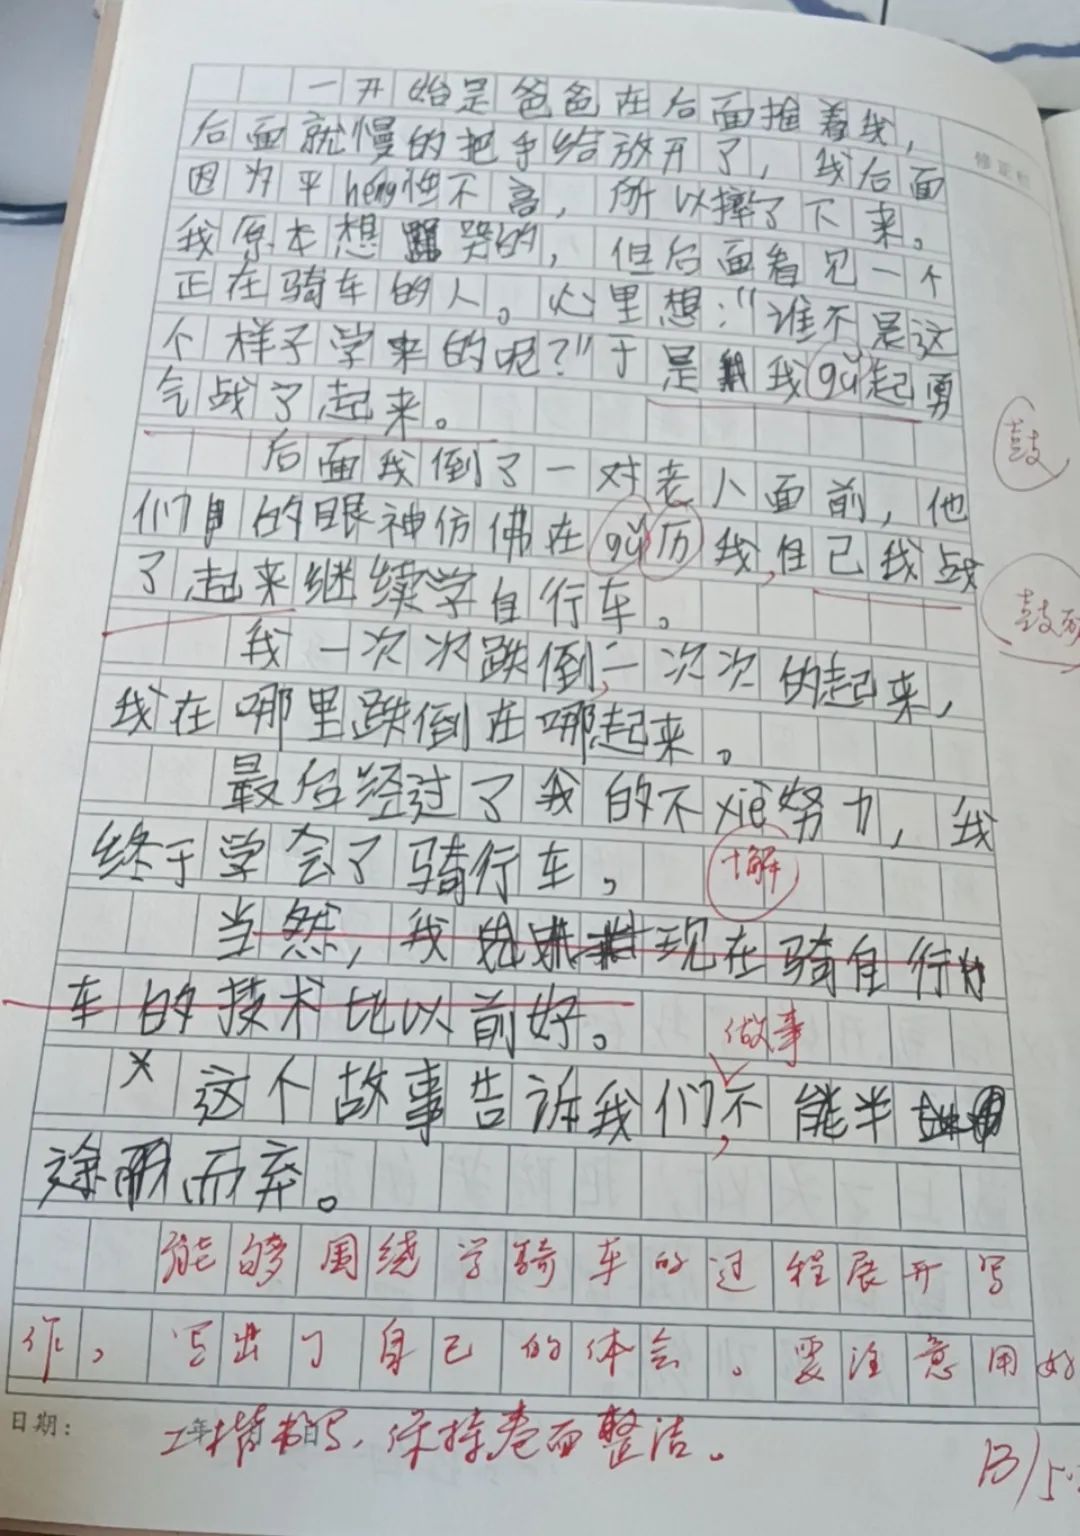 一开始是爸爸在后面推着我，
后面就慢的把手给放开了，我后面
因为平héng性不高，所以摔了下来。
我原本想哭的，但后面看见一个
正在骑车的人。心里想：“谁不是这
个样子学来的呢？”于是我gǔ起勇
气战了起来。
鼓
后面我倒了一对老人面前，他
们的眼神仿佛在gǔ历我，自己我战
了起来继续学自行车。
鼓励
我一次次跌倒，一次次的起来，
我在哪里跌倒在哪起来。
最后经过了我的不xiè努力，我
终于学会了骑行车。
懈
当然，我现在骑自行
车的技术比以前好。
做事
这个故事告诉我们，不能半
途而弃。
能够围绕学骑车的过程展开写
作，写出了自己的体会。要注意用好
工楷书写，保持卷面整洁。
日期：
修正栏